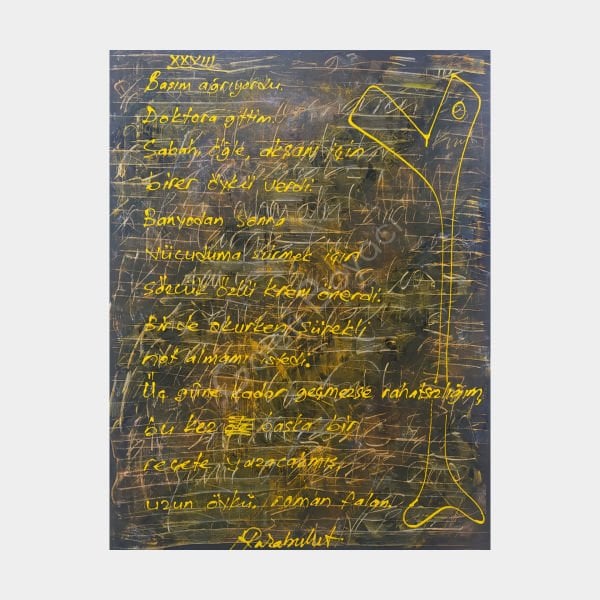 XXVIII
Başım ağrıyordu.
Doktora gittim.
Sabah, öğle, akşam için
birer öykü verdi.
Banyodan sonra
vücuduma sürmek için
sözcük özlü krem önerdi.
Bir de okurken sürekli
not almamı istedi.
Üç güne kadar geçmezse rahatsızlığım,
bu kez başka bir
reçete yazacakmış,
uzun öykü, roman falan.
Karabulut.